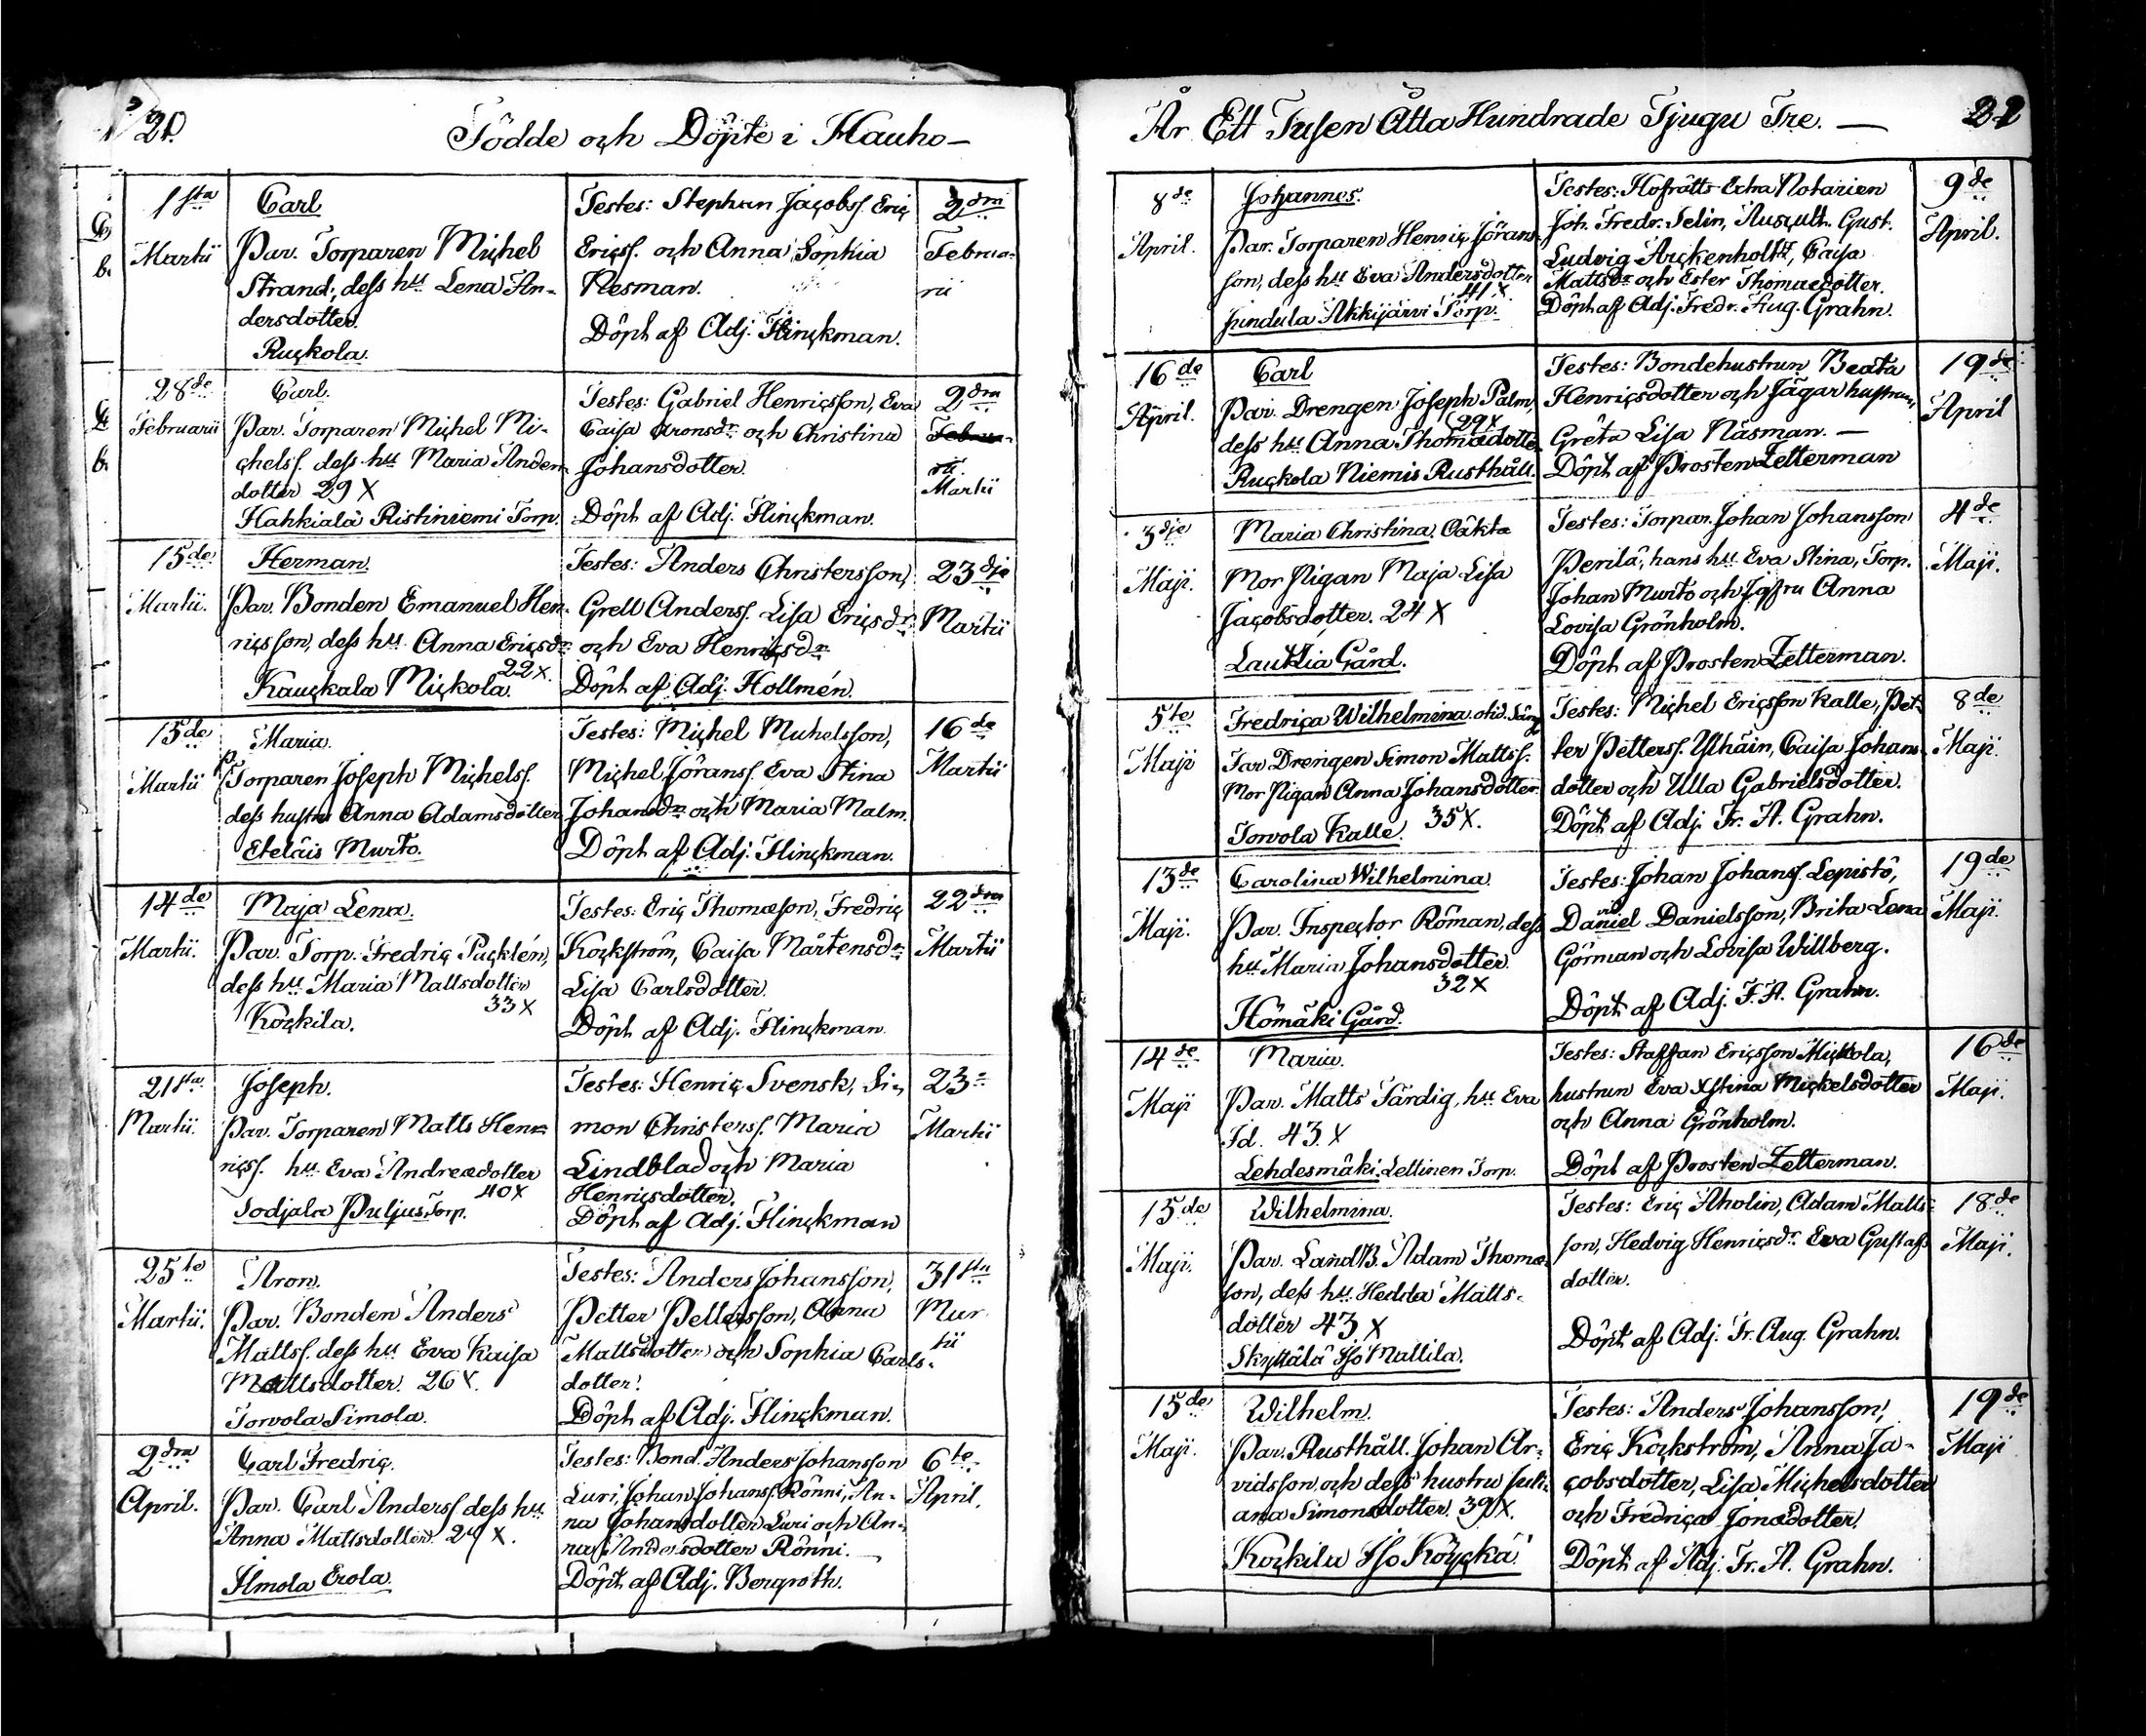 Födde och Döpte i Hauho —
1sta
Martii
Carl
Par. Torparen Michel
Strand, dess hu Lena An-
dersdotter.
Ruckola.
Testes: Stephan Jacobss. Eric
Ericss. och Anna Sophia
Nesman.
Döpt af Adj. Flinckman.
2dra
Februa-
rii
28de
Februarii
Carl.
Par. Torparen Michel Mi-
chelss. dess hu Maria Anders
dotter 29 X
Hahkiala Ristiniemi Torp.
Testes: Gabriel Henricsson, Eva
Caisa Aronsdr och Christina
Johansdotter.
Döpt af Adj. Flinckman.
2dra
Februa-
rii.
Martii
15de
Martii.
Herman.
Par. Bonden Emanuel Hen-
ricsson, dess hu Anna Ericsdr
22 X.
Kauckala Mickola.
Testes: Anders Christersson,
Grels Anderss. Lisa Ericsdr
och Eva Henricsdr
Döpt af Adj. Hollmén.
23dje
Martii
15de
Martii
Maria.
Torparen Joseph Michelss.
dess hustru Anna Adamsdotter
Eteläis Murto.
Testes: Michel Michelsson,
Michel Jöranss. Eva Stina
Johansdr och Maria Malm.
Döpt af Adj. Flinckman.
16de
Martii
14de
Martii.
Maja Lena.
Par. Torp. Fredric Pucklén,
dess hu Maria Mattsdotter
33 X
Kockila.
Testes: Eric Thomæson, Fredric
Kockström, Caisa Mårtensdr
Lisa Carlsdotter.
Döpt af Adj. Flinckman.
22dra
Martii
21sta
Martii.
Joseph.
Par. Torparen Matts Hen-
ricss. hu Eva Andreædotter
40 X
Sodjala Puljus Torp.
Testes: Henric Svensk, Si-
mon Christerss. Maria
Lindblad och Maria
Henricsdotter.
Döpt af Adj. Flinckman
23
Martii
25te
Martii.
Aron.
Par. Bonden Anders
Mattss. dess hu Eva Kaisa
Mattsdotter. 26 X.
Torvola Simola.
Testes: Anders Johansson,
Petter Pettersson, Anna
Mattsdotter och Sophia Carls-
dotter.
Döpt af Adj. Flinckman.
31sta
Mar
tii
2dra
April.
Carl Fredric.
Par. Carl Anderss. dess hu
Anna Mattsdotter. 24 X.
Ilmola Erola.
Testes: Bond. Anders Johansson
Luri, Johan Johanss. Rönni, An-
na Johansdotter Luri och An-
na Andersdotter Rönni.
Döpt af Adj. Bergroth.
6te
April.
År Ett Tusen Åtta Hundrade Tjugu Tre. —
8de
April.
Johannes.
Par. Torparen Henric Jörans-
son, dess hu Eva Andersdotter
41 X
Hindula Akkijärvi Torp.
Testes: Hofrätts Extra Notarien
Joh. Fredr. Telin, Auscult. Gust.
Ludvig Arckenholtz, Caisa
Mattsdr och Ester Thomædotter.
Döpt af Adj. Fredr. Aug. Grahn.
9de
April.
16de
April.
Carl
Par. Drengen Joseph Palm,
29 X
dess hu Anna Thomædotter
Ruckola Niemis Rusthåll.
Testes: Bondehustrun Beata
Henricsdotter och Jägarhustrun,
Greta Lisa Näsman. —
Döpt af Prosten Zetterman
19de
April
3dje
Maji.
Maria Christina. Oäkta
Mor Pigan Maja Lisa
Jacobsdotter. 24 X
Lautsia Gård.
Testes: Torpar. Johan Johansson
Perilä, hans hu Eva Stina, Torp.
Johan Murto och Jgfru Anna
Lovisa Grönholm.
Döpt af Prosten Zetterman.
4de
Maji.
5te
Maji
Fredrica Wilhelmina. otid. Säng
Far Drengen Simon Mattss.
Mor Pigan Anna Johansdotter.
35 X.
Torvola Kalle.
Testes: Michel Ericsson Kalle, Pet-
ter Petterss. Ylhäin, Caisa Johans-
dotter och Ulla Gabrielsdotter.
Döpt af Adj. Fr. A. Grahn.
8de
Maji.
13de
Maji.
Carolina Wilhelmina.
Par. Inspector Röman, dess
hu Maria Johansdotter.
32 X
Hömäki Gård.
Testes: Johan Johanss. Lepistö,
Daniel Danielsson, Brita Lena
Görman och Lovisa Willberg.
Döpt af Adj. F. A. Grahn.
19de
Maji.
14de
Maji
Maria.
Par. Matts Färdig, hu Eva
Jd. 43. X
Lehdesmäki Lettinen Torp.
Testes: Staffan Ericsson Mickola,
hustrun Eva Xstina Mickelsdotter
och Anna Grönholm.
Döpt af Prosten Zetterman.
16de
Maji.
15de
Maji.
Wilhelmina.
Par. LandB. Adam Thomæ-
son, dess hu Hedda Matts-
dotter 43. X
Skyttälä Iso Mattila.
Testes: Eric Aholin, Adam Matts-
son, Hedvig Henricsdr Eva Gustafs
dotter.
Döpt af Adj. Fr. Aug. Grahn.
18de
Maji.
15de
Maji.
Wilhelm.
Par. Rusthåll. Johan Ar-
vidsson och dess hustru Juli-
ana Simonsdotter. 39 X.
Kockila Iso Köyckä.
Testes: Anders Johansson,
Eric Kockström, Anna Ja-
cobsdotter, Lisa Michelsdotter
och Fredrica Jonædotter.
Döpt af Adj. Fr. A. Grahn.
19de
Maji